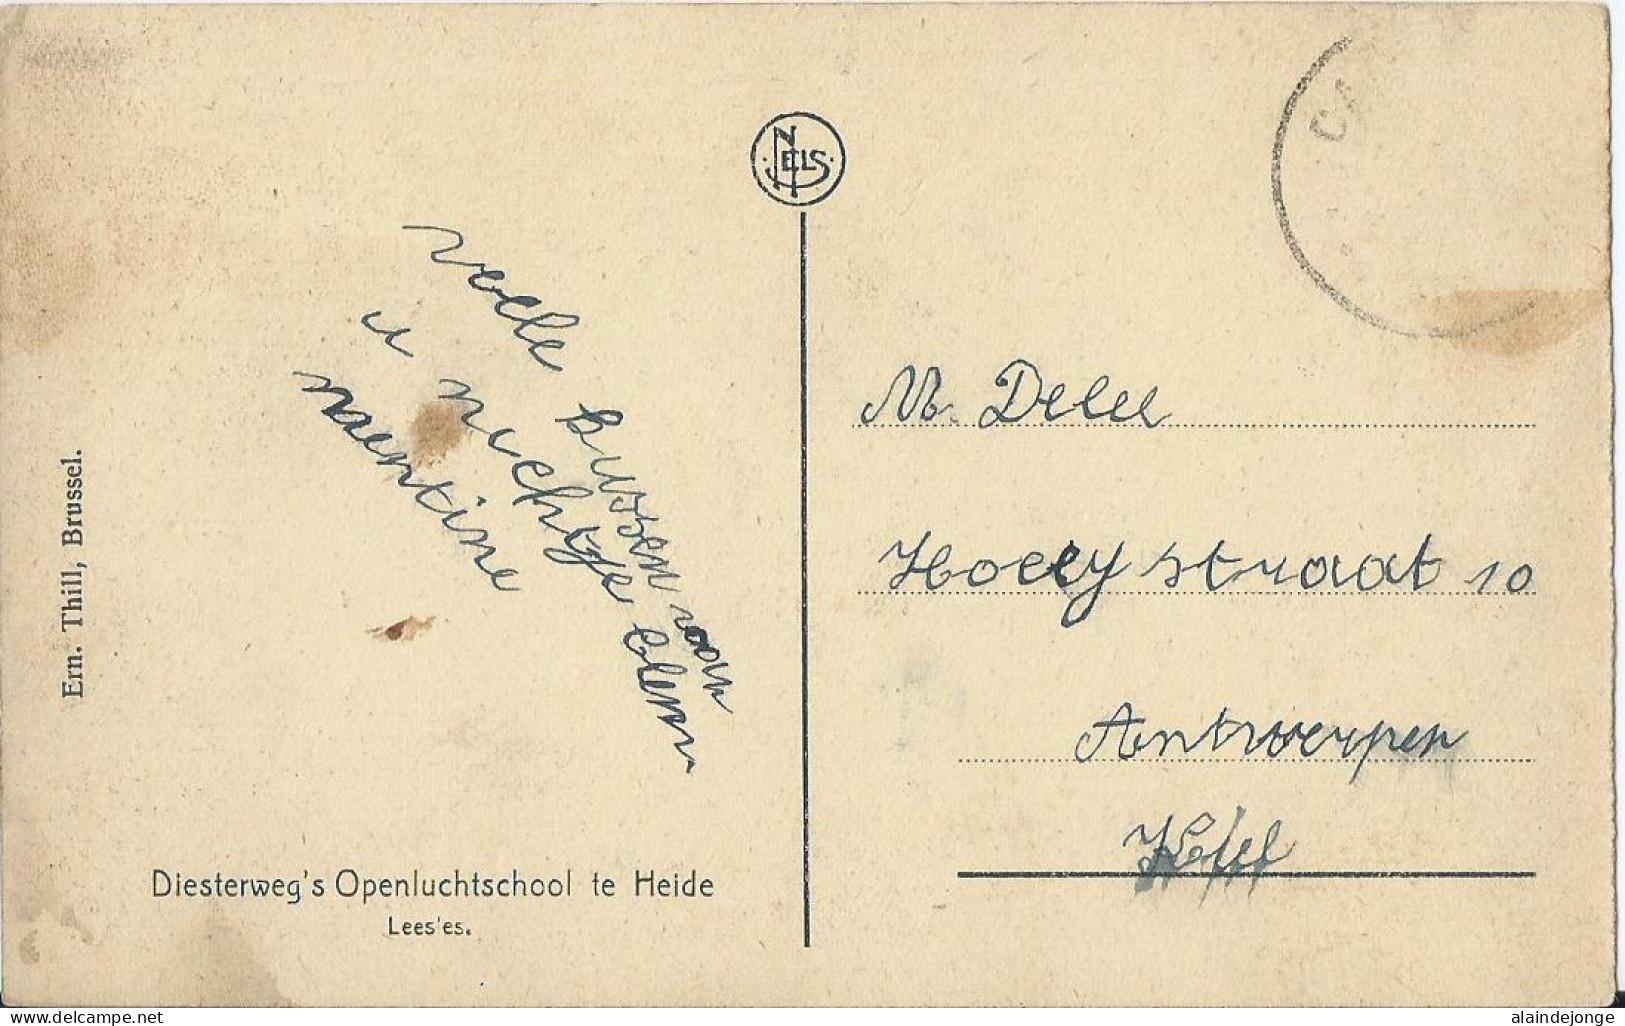 NELS
CA
veele kussen van
u nichtje Clem
mentine
M. Delee
straat 10
Antwerpen
Ern. Thill, Brussel.
Diesterweg's Openluchtschool te Heide
Lees'es.
www.delcampe.net
alaindejonge